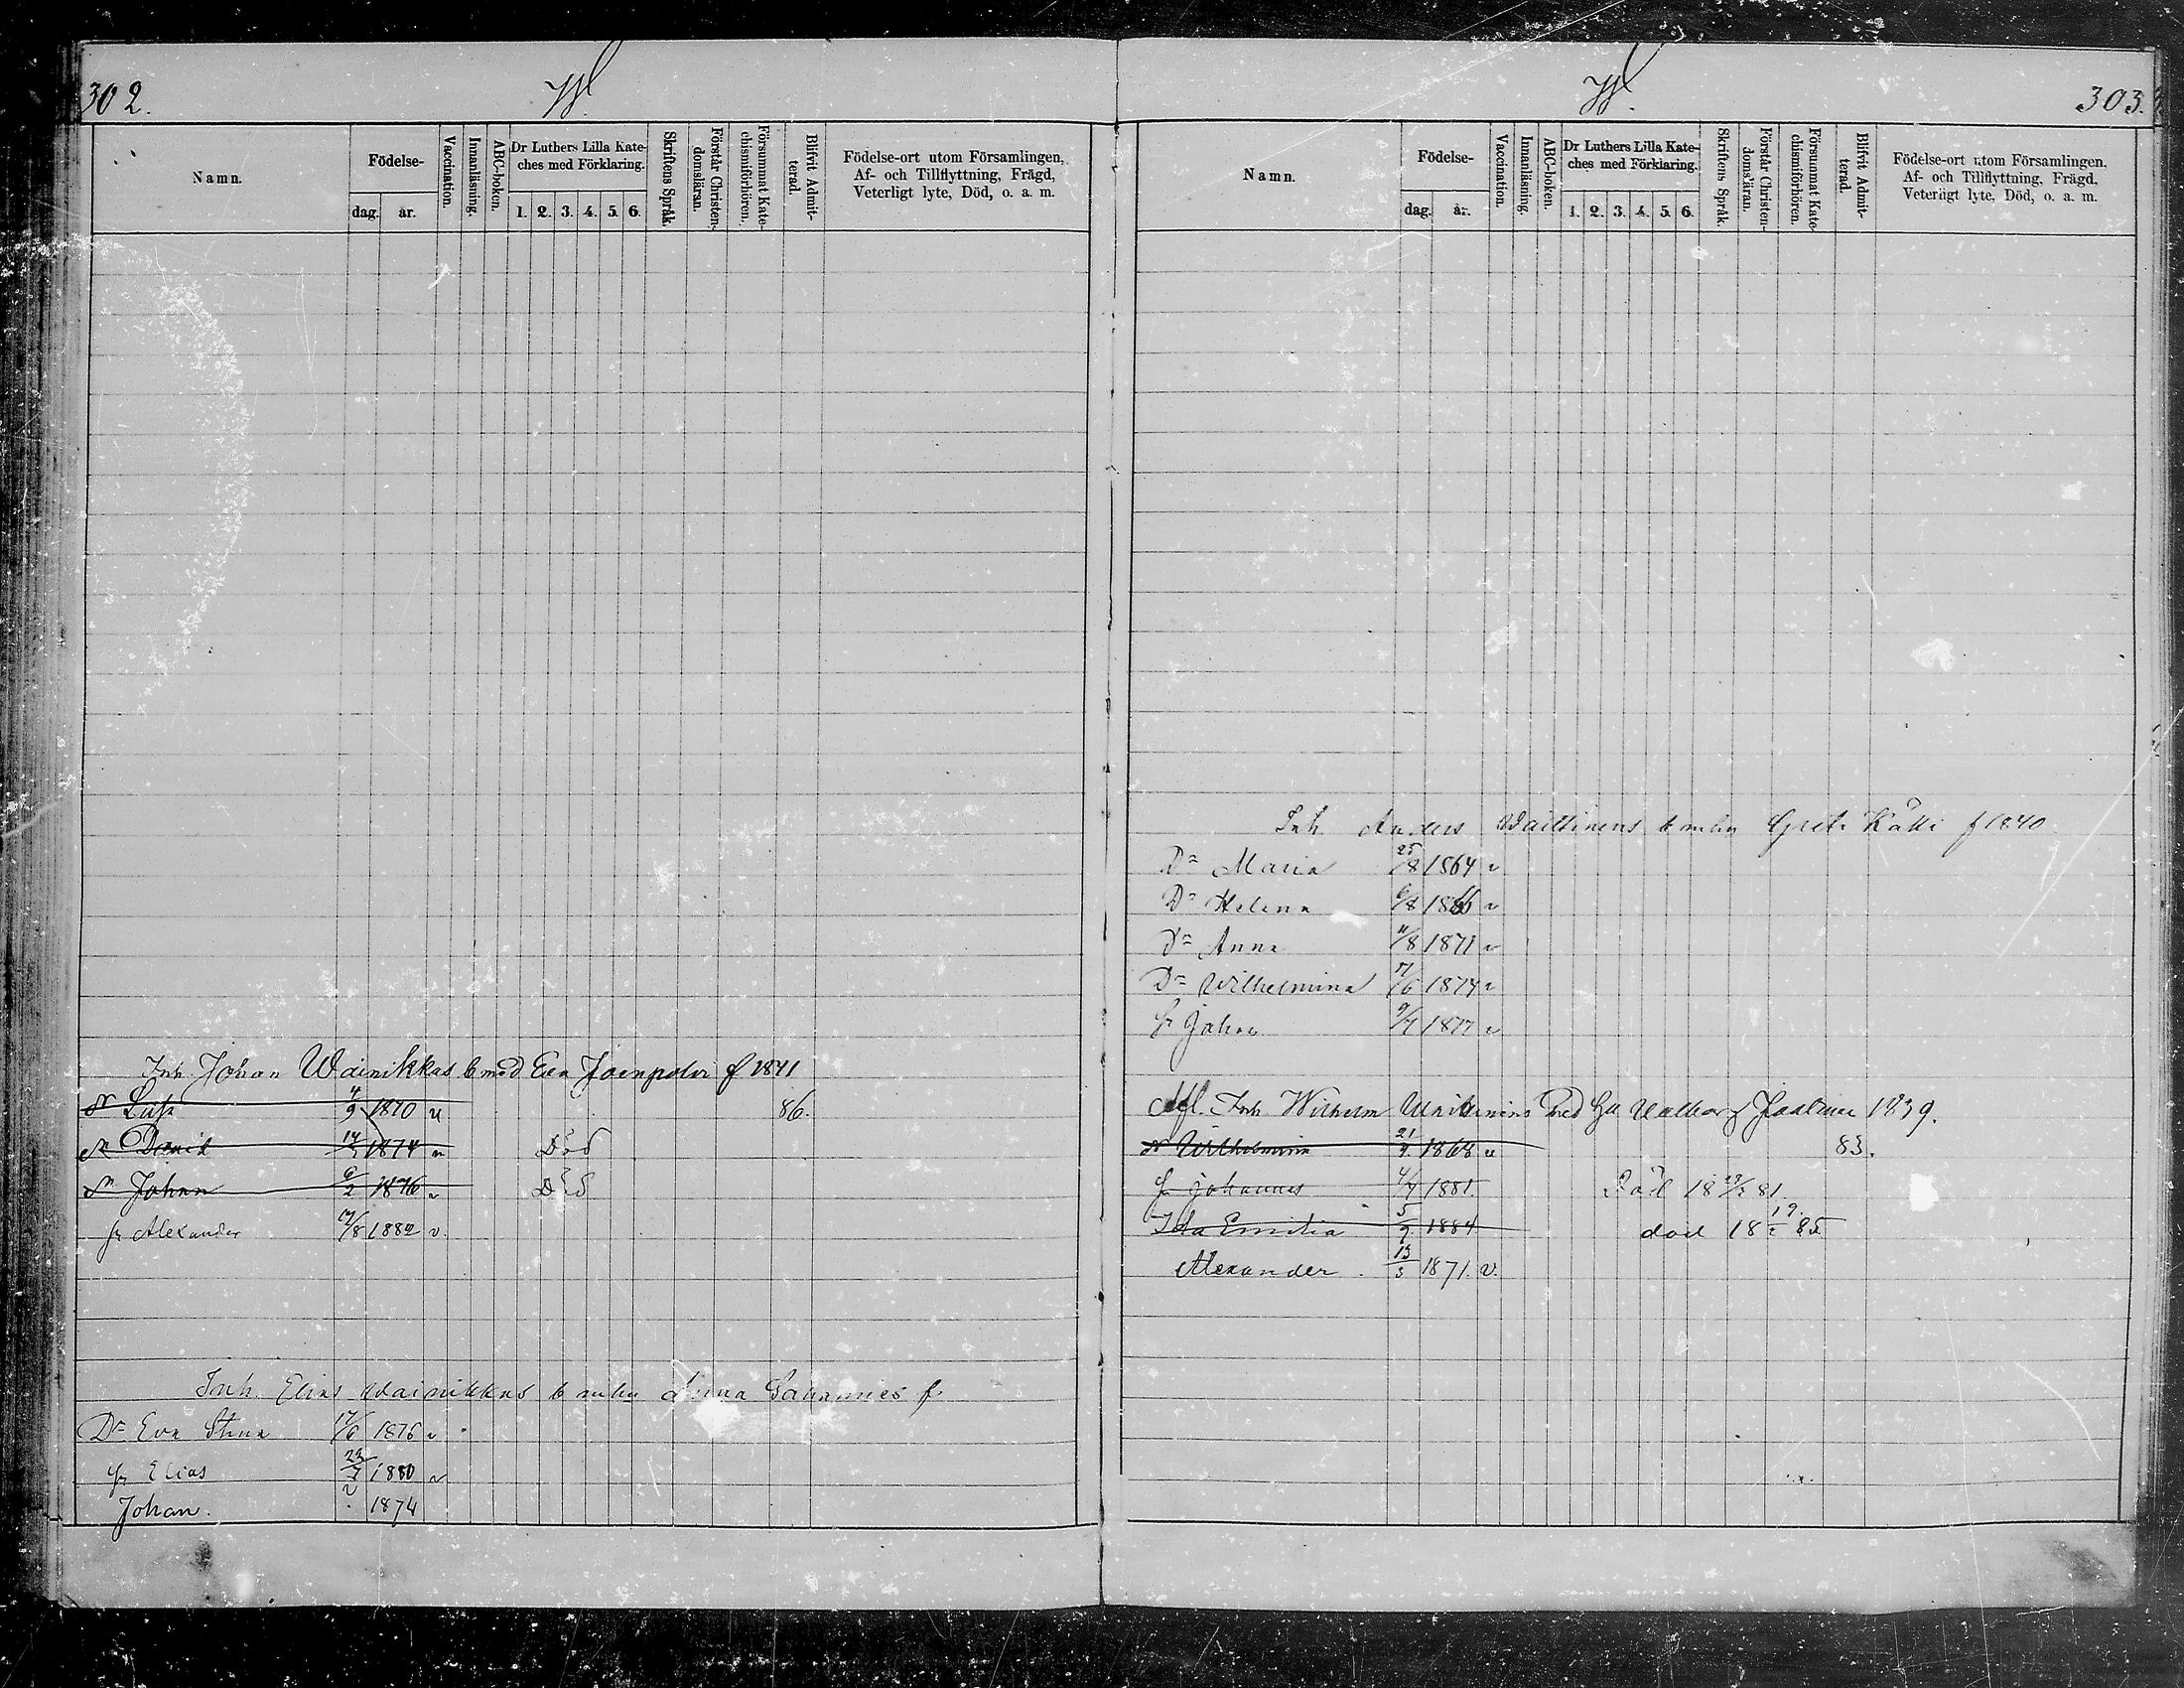 302.
W.
Namn.
Födelse-
dag.
år.
Vaccination.
Innanläsning.
ABC-boken.
Dr Luthers Lilla Kate-
ches med Förklaring.
1. 2. 3. 4. 5. 6.
Skriftens Språk.
Förstår Christen-
domsläran.
Försummat Kate-
chismiförhören.
Blifvit Admit-
terad.
Födelse-ort utom Församlingen,
Af- och Tillflyttning, Frägd,
Veterligt lyte, Död, o. a. m.
Inh. Johan Wainikkas b med Eva Joenpolvi f 1841
Lisa 4/9 1870 v 86.
David 1874 v Död
Johan 6/2 1876 v Död
Alexander 1882 v.
Inh. Elias Wainikkas b Anna Johannes f.
Dr Eva Stina 17/6 1876 v
Elias 1880 v
Johan. 1874
W.
303.
Namn.
Födelse-
dag.
år.
Vaccination.
Innanläsning.
ABC-boken.
Dr Luthers Lilla Kate-
ches med Förklaring.
1. 2. 3. 4. 5. 6.
Skriftens Språk.
Förstår Christen-
domsläran.
Försummat Kate-
chismiförhören.
Blifvit Admit-
terad.
Födelse-ort utom Församlingen.
Af- och Tillflyttning, Frägd,
Veterligt lyte, Död, o. a. m.
Inh Anders b Greta f 1840
Dr Maria 25/8 1864 v
Dr Helena 6/8 1866 v
Dr Anna 11/8 1871 v
Dr Wilhelmina 1874 v
Johan 9/7 1877 v
Afl. Inh. Wilhelm med 1839.
Wilhelmina 1868 v 83.
Johannes 4/7 1881. Död 81.
Ida Emilia 5/9 1884 död 85
Alexander. 13/3 1871. v.